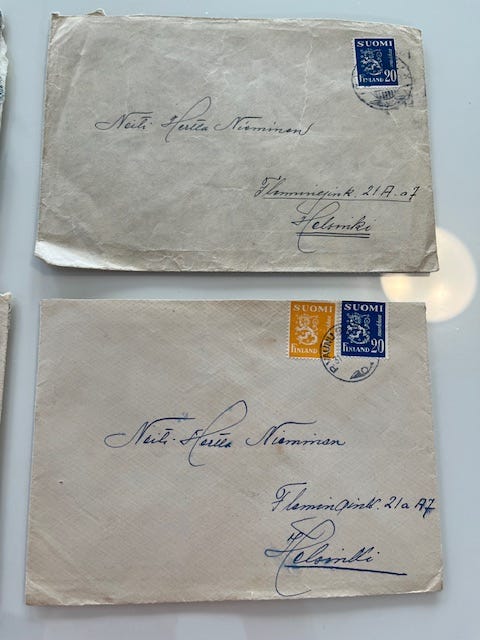 SUOMI
20
FINLAND
Neiti Hertta Nieminen
Flemingink. 21 A. a7
Helsinki
SUOMI
FINLAND
SUOMI
20
FINLAND
Neiti Hertta Nieminen
Flemingink. 21a A7
Helsinki